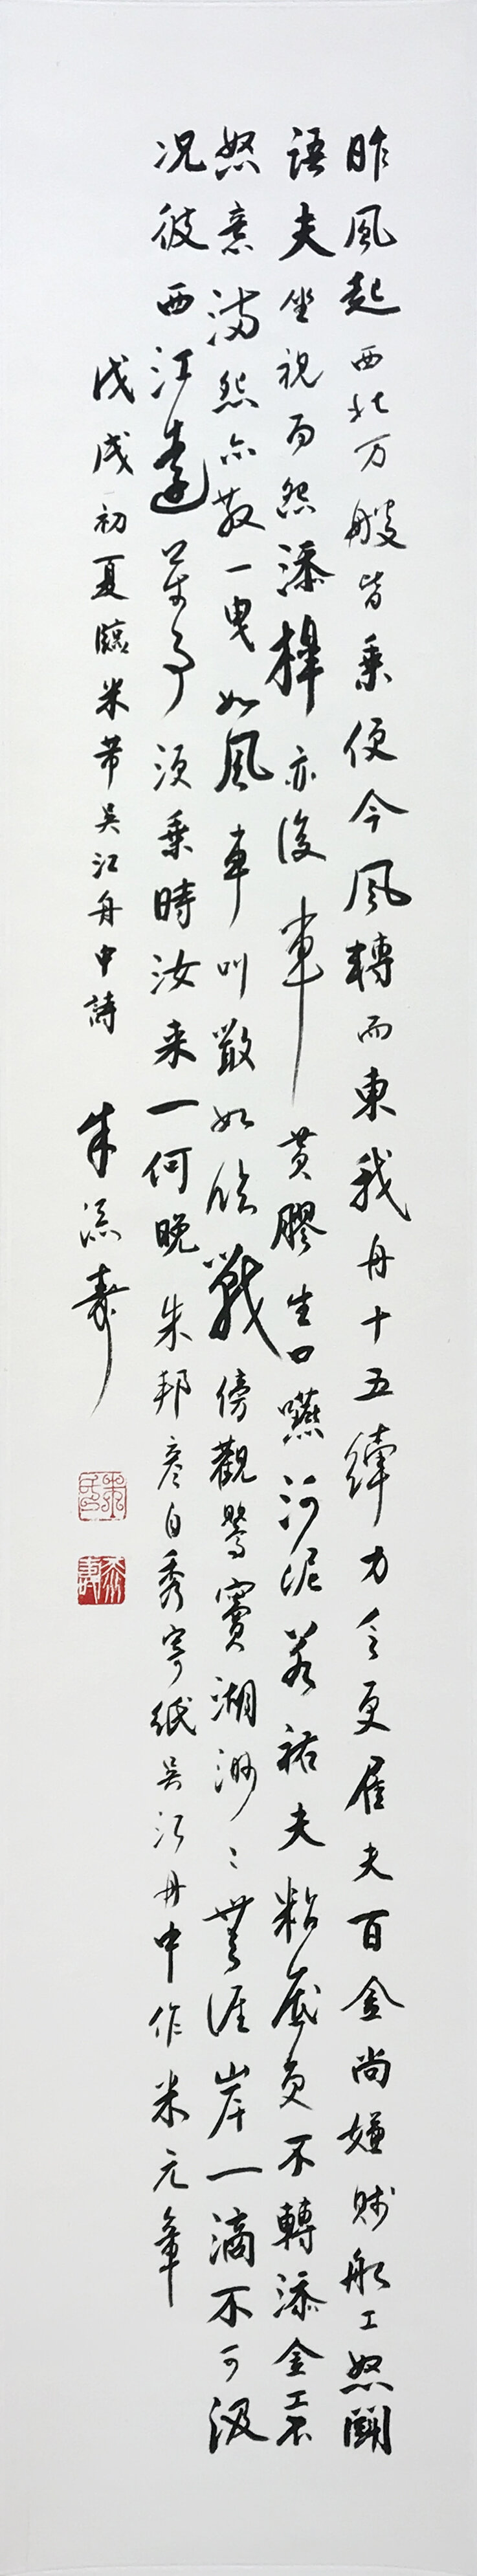 昨風起西北万艘皆乘便今風轉而東我舟十五縴力乏更雇夫百金尚嫌賤船工怒鬪
語夫坐視而怨添槹亦復車黃膠生口嚥河泥若祐夫粘底更不轉添金工不
怒意滿怨亦散一曳如風車叫噉如臨戰傍觀鶯竇湖渺〻無涯岸一滴不可汲
況彼西江遠萬事須乘時汝来一何晚朱邦彥自秀寄紙吳江舟中作米元章
戊戌初夏臨米芾吳江舟中詩 朱添壽